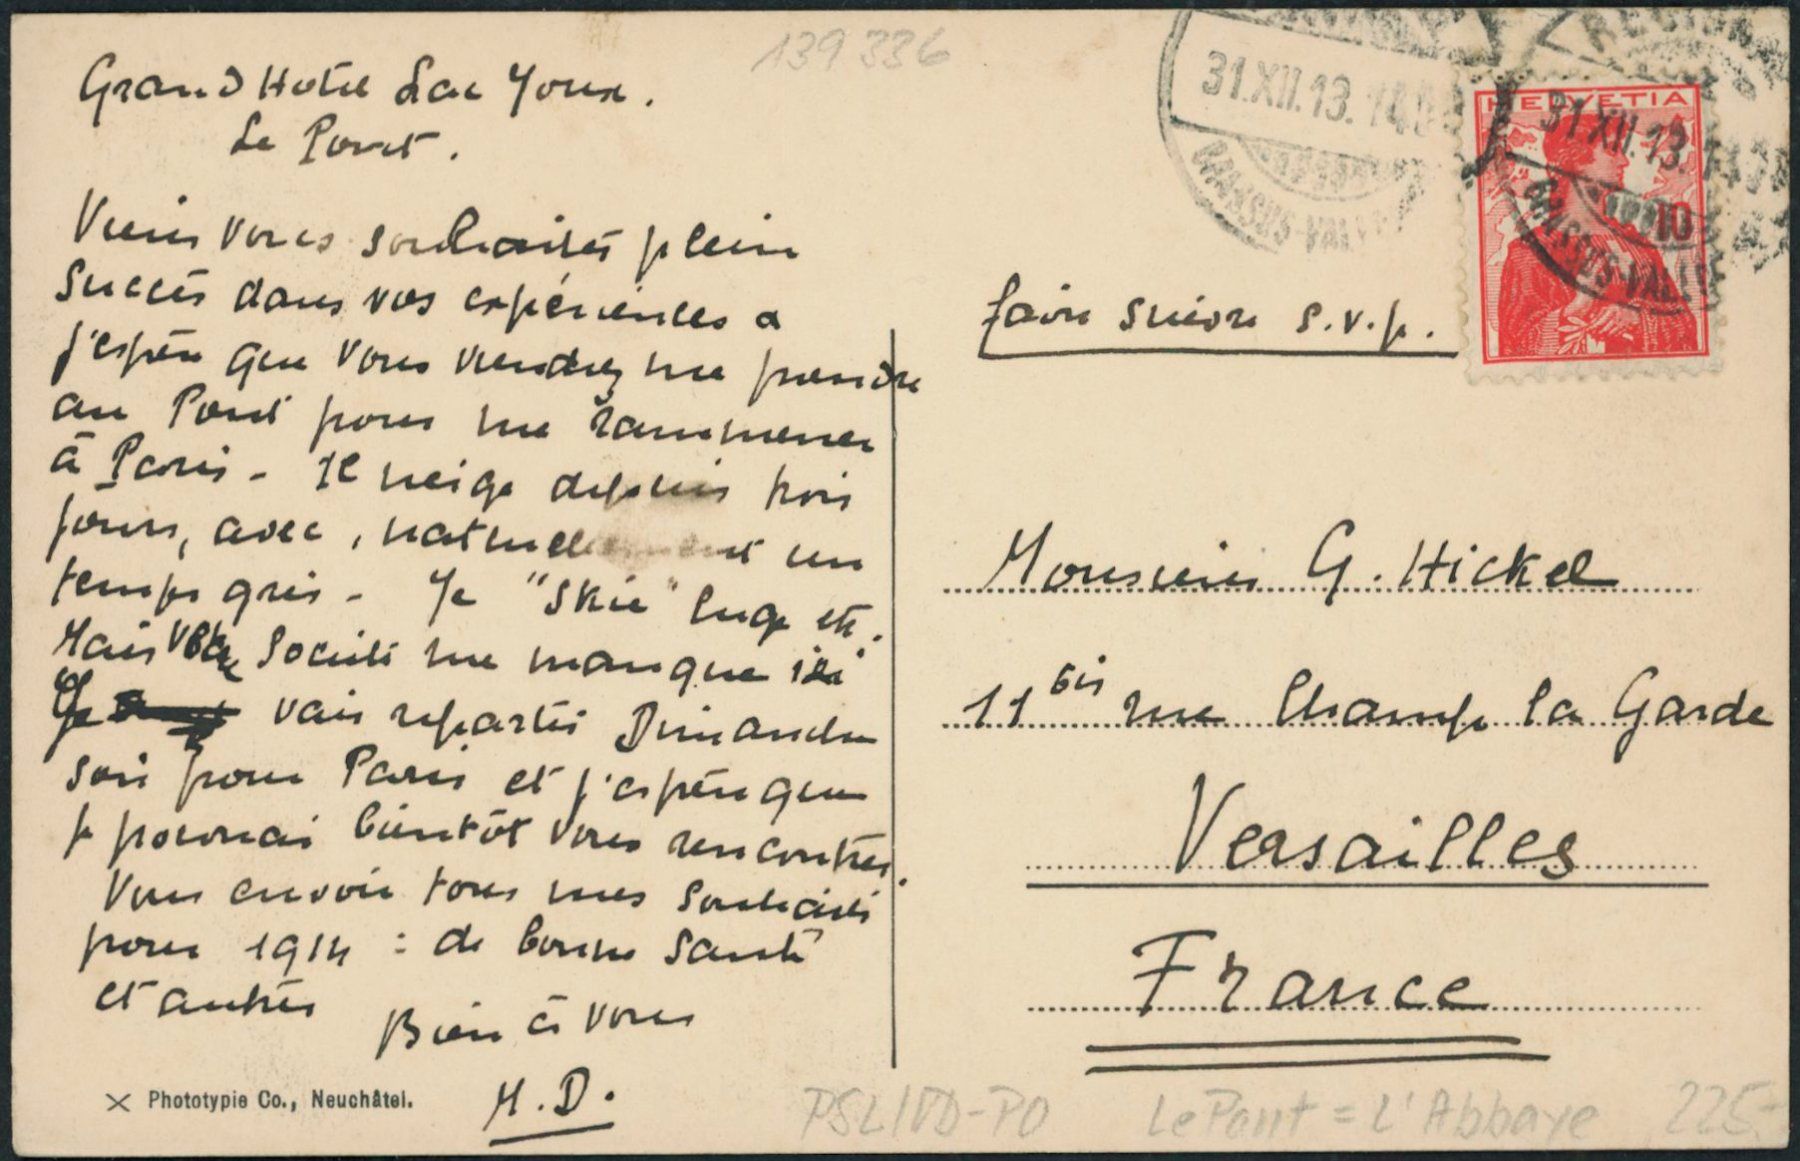 139 336
Grand Hotel Lac Joux.
Le Pont.
Viens vous souhaiter plein
succès dans vos expériences &
j'espère que vous viendrez me prendre
au Pont pour me rammener
à Paris - Il neige depuis trois
jours, avec, naturellement un
temps gris - Je "skie" luge etc.
Mais votre société me manque ici
Je vais repartir Dimanche
soir pour Paris et j'espère que
je pourrai bientôt vous rencontrer.
Vous envoie tous mes souhaits
pour 1914 : de bonne santé
et autres
Bien à vous
M. D.
× Phototypie Co., Neuchâtel.
31.XII.13. 14
BRASSUS-VALL
HELVETIA
10
31.XII.13.
BRASSUS-VALL
faire suivre s.v.p.
Monsieur G. Hickel
11 bis rue Champ la Garde
Versailles
France
PSL/VD-PO Le Pont = L'Abbaye 225.-